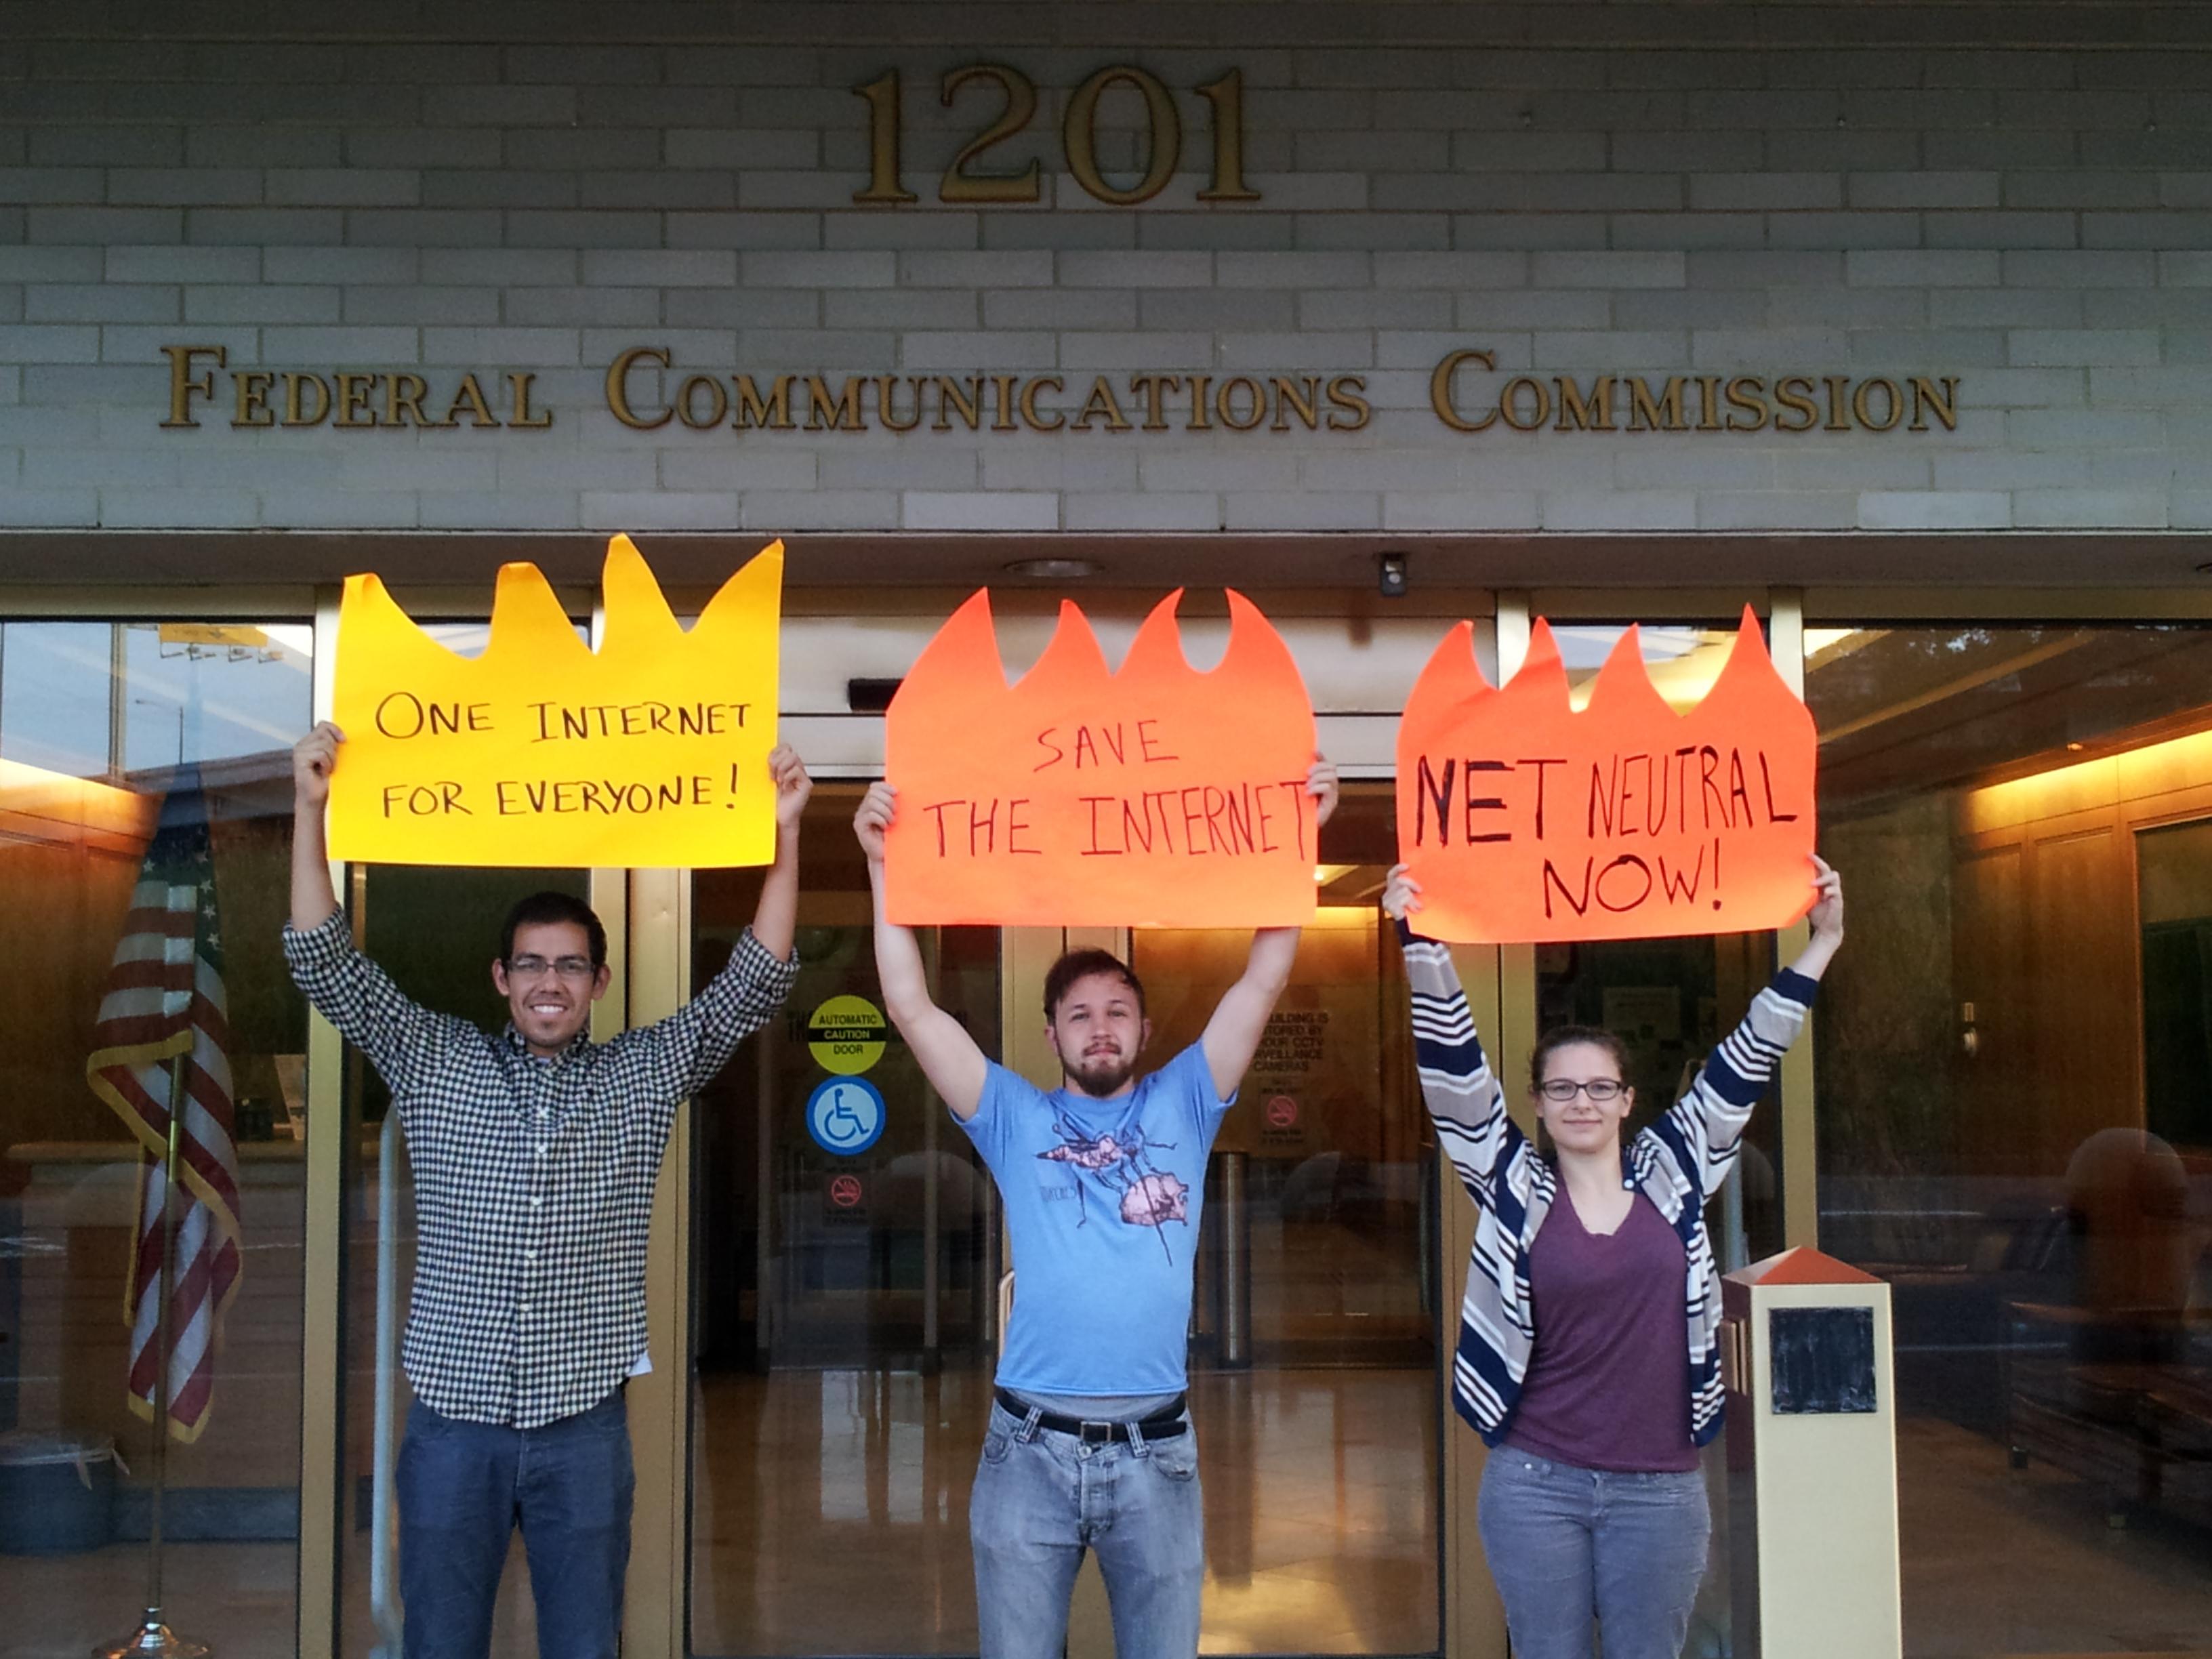 1201
FEDERAL COMMUNICATIONS COMMISSION
ONE INTERNET
FOR EVERYONE!
SAVE
THE INTERNET
NET NEUTRAL
NOW!
AUTOMATIC
CAUTION
DOOR
BUILDING IS
BY
HOUR CCTV
CAMERAS